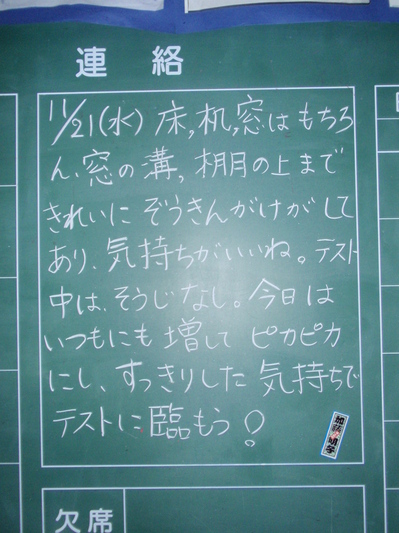 連絡
11/21(水)床,机,窓はもちろ
ん、窓の溝,棚の上まで
きれいにぞうきんがけがして
あり、気持ちがいいね。テスト
中は、そうじなし。今日は
いつもにも増してピカピカ
にし、すっきりした気持ちで
テストに臨もう!
欠席